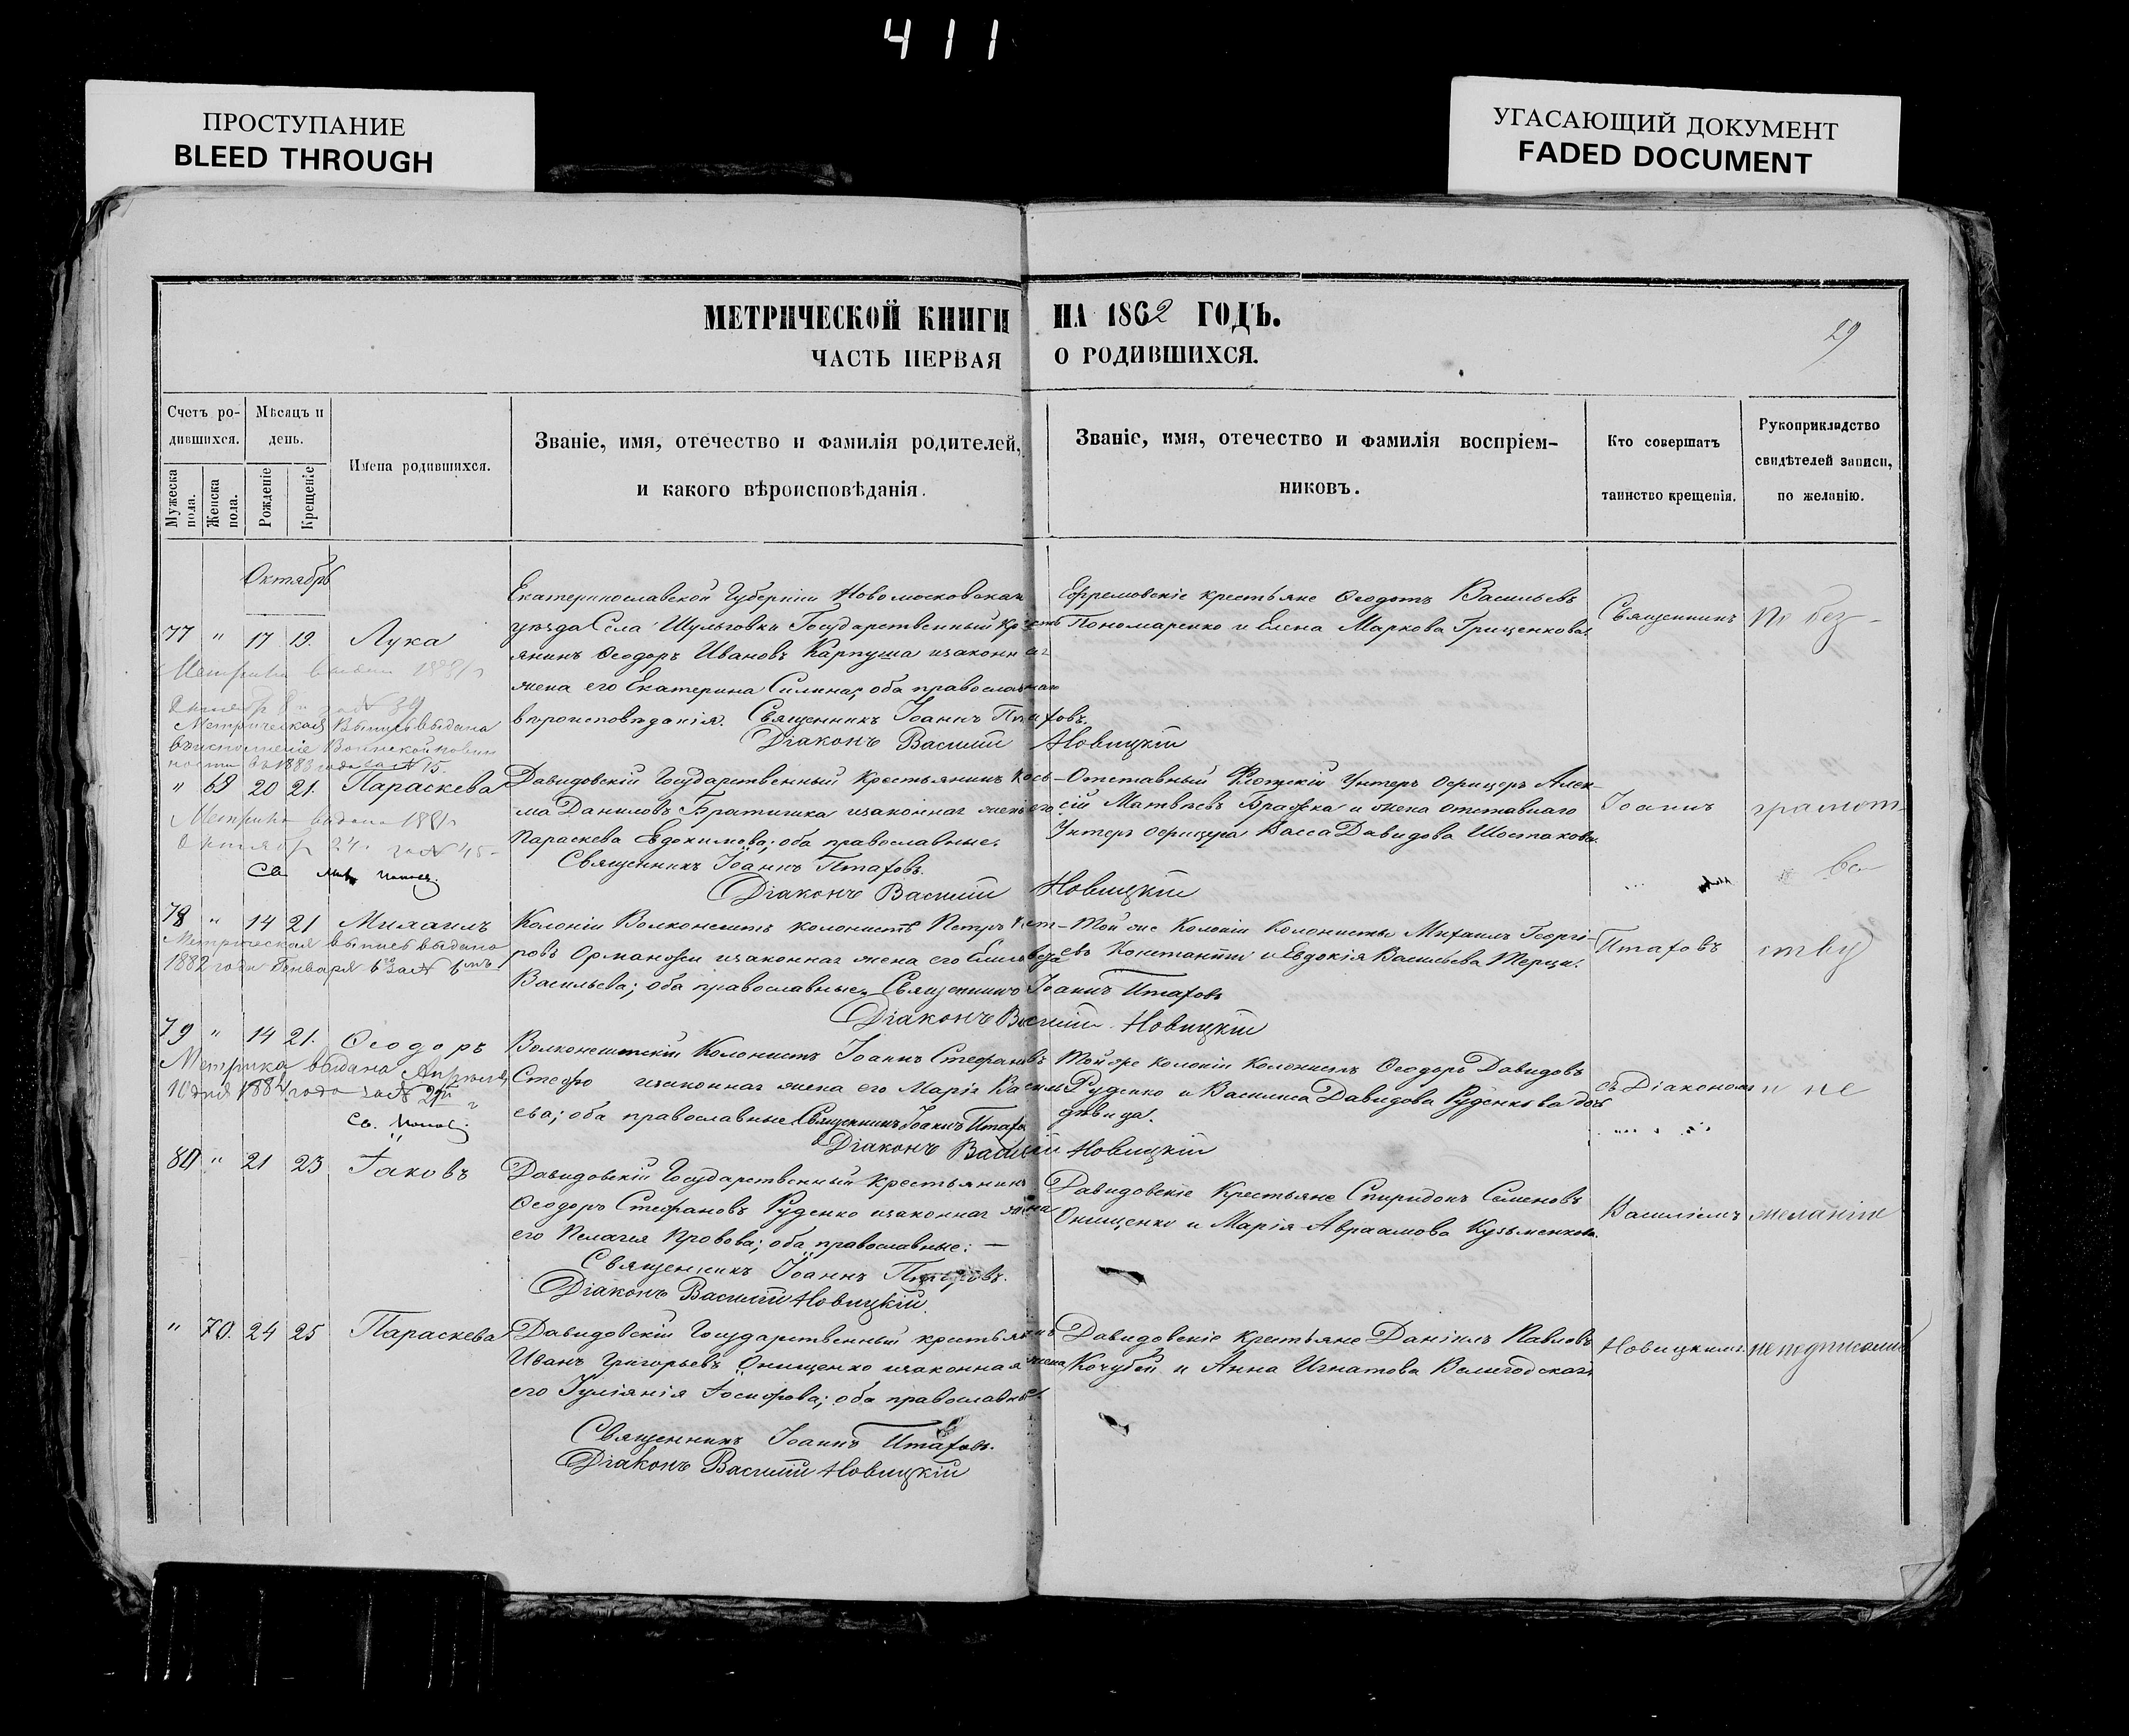 411
ПРОСТУПАНИЕ
BLEED THROUGH
УГАСАЮЩИЙ ДОКУМЕНТ
FADED DOCUMENT
МЕТРИЧЕСКОЙ КНИГИ НА 1862 ГОДЪ.
29
ЧАСТЬ ПЕРВАЯ О РОДИВШИХСЯ.
Счетъ ро-
дившихся.
Мужеска пола.
Женска пола.
Мѣсяцъ и
день.
Рожденіе
Крещеніе
Имена родившихся.
Званіе, имя, отечество и фамилія родителей,
и какого вѣроисповѣданія.
Званіе, имя, отечество и фамилія воспріем-
никовъ.
Кто совершатъ
таинство крещенія.
Рукоприкладство
свидѣтелей записи,
по желанію.
Октябрь
77 " 17 19. Лука
Екатеринославской Губерніи Новомосковскаго
уѣзда Села Шульговки Государственный кресть
янинъ Ѳеодоръ Ивановъ Карпуша изаконная
жена его Екатерина Силина; оба православнаго
вѣроисповѣданія. Священникъ Іоаннъ Птаховъ.
Діаконъ Василій Новицкій
Ефремовскіе крестьяне Ѳеодотъ Васильевъ
Пономаренко и Елена Маркова Гриценкова.
Священникъ
По без-
Метрическая Выпись выдана
въ 1883 года за № 15.
" 69 20 21. Параскева
Давидовскій Государственный крестьянинъ Кось-
ма Даниловъ Братишка изаконная жена его
Параскева Евдокимова; оба православные.
Священникъ Іоаннъ Птаховъ.
Діаконъ Василій Новицкій
Отставный Флотскій Унтеръ офицеръ Алек-
сій Матвѣевъ и жена отставнаго
Унтеръ офицера Васса Давидова Шостакова.
Іоаннъ
грамот-
Метрика выдана
78 " 14 21 Михаилъ
Метрическая выпись выдана
1882 года Генваря
Колоніи Волконештъ колонистъ Петръ Пет-
ровъ изаконная жена его Елисавета
Васильева; оба православные. Священникъ Іоаннъ Птаховъ
Діаконъ Василій Новицкій
Той же Колоніи Колонисты Михаилъ Георгі-
евъ Константин и Евдокія Васильева Терзи.
Птаховъ
ству
79 " 14 21. Ѳеодоръ
Метрика выдана Апрѣля
10 дня 1884 года за №
Волконештскій Колонистъ Іоаннъ Стефановъ
Стефо изаконная жена его Марія Василь
ева; оба православные. Священникъ Іоаннъ Птахов
Діаконъ Василій Новицкій
Той же колоніи Колонистъ Ѳеодоръ Давидовъ
Руденко и Василиса Давидова Руденкова
дѣвица.
съ Діакономъ
и не
80 " 21 23 Іаковъ
Давидовскій Государственный Крестьянинъ
Ѳеодоръ Стефановъ Руденко изаконная жена
его Пелагея Провова; оба православные: —
Священникъ Іоаннъ Птаховъ.
Діаконъ Василій Новицкій.
Давидовскіе Крестьяне Спиридонъ Семеновъ
Онищенко и Марія Авраамова Кузьменкова.
Василіемъ
желанію
" 70. 24 25 Параскева
Давидовскій Государственный крестьянинъ
Иванъ Григорьевъ Онищенко изаконная жена
его Іуліянія Іосифова; оба православные.
Священникъ Іоаннъ Птаховъ.
Діаконъ Василій Новицкій
Давидовскіе крестьяне Даніилъ Павловъ
Кочубей и Анна Игнатова Велигодская
Новицкимъ.
неподписались